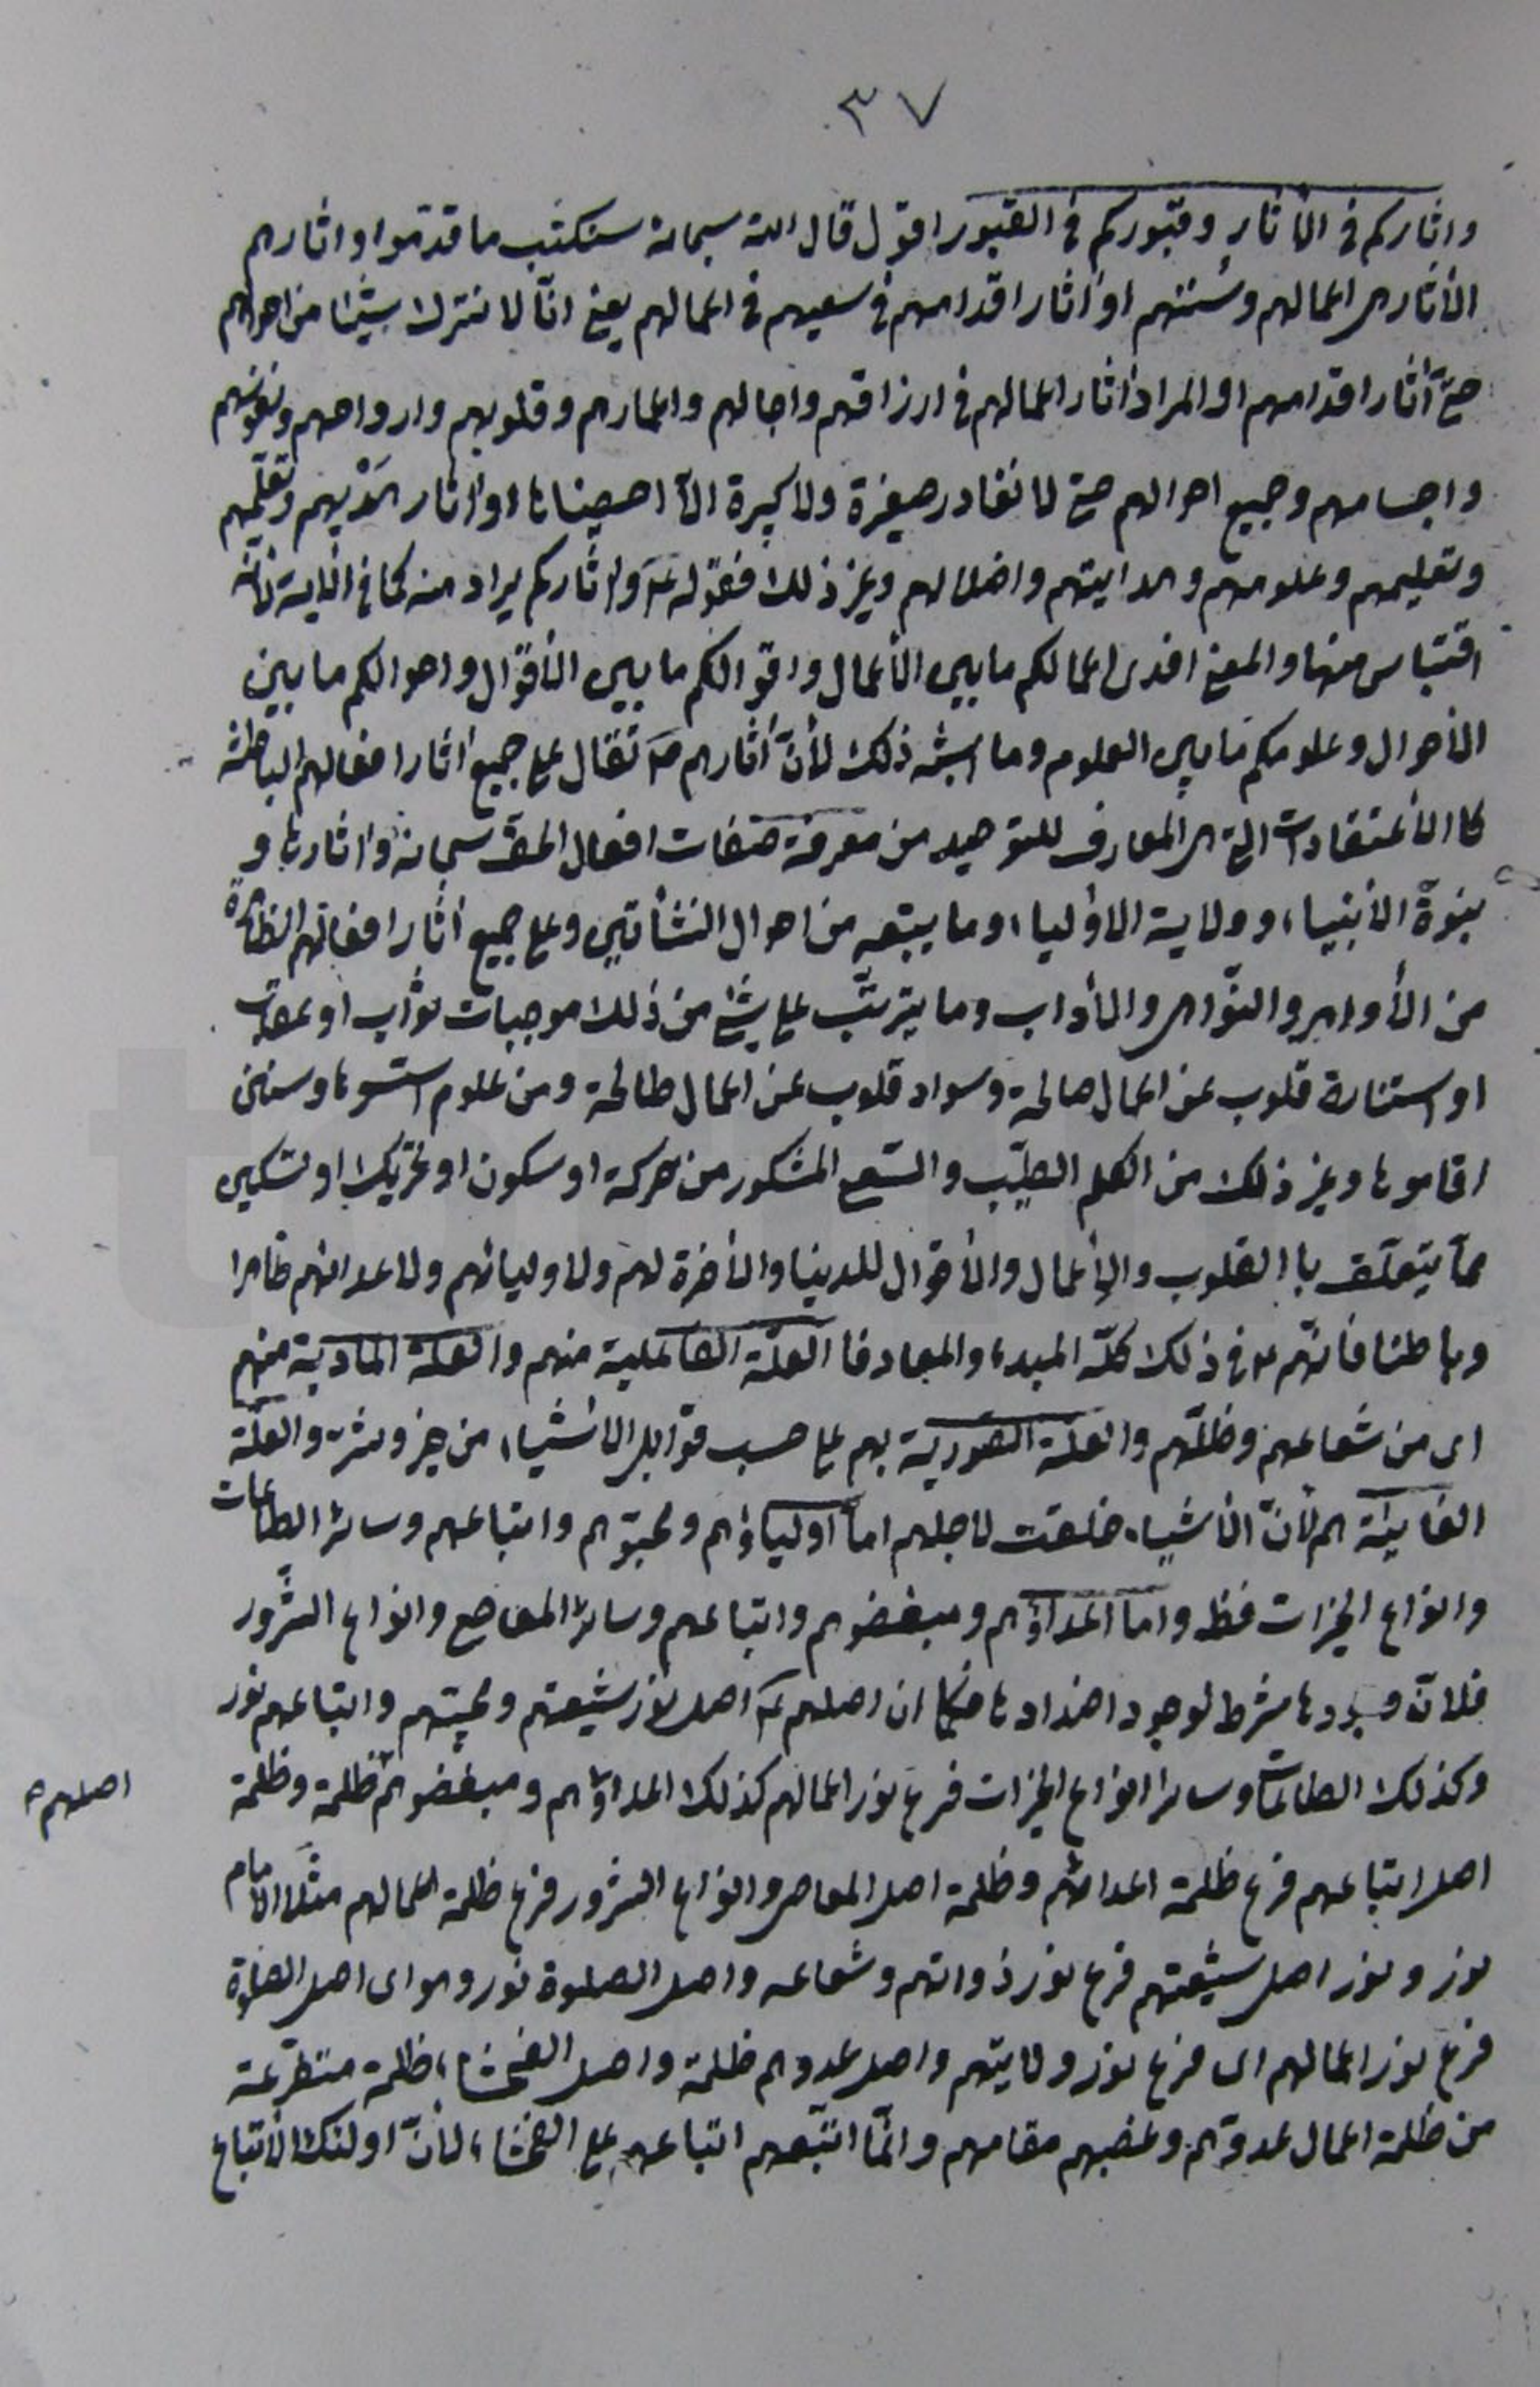 ٣٧
واثاركم فى الاثار وقبوركم فى القبور اقول قال الله سبحانه سنكتب ما قدّموا واثارهم
الأثار هى اعمالهم وسُننهم او اثار اقدامهم فى سعيهم فى اعمالهم يعنى انّا لا نترك شيئا من احوالهم
حتى اثار اقدامهم او المراد اثار اعمالهم فى ارزاقهم واجالهم واعمارهم وقلوبهم وارواحهم ونفوسهم
واجسامهم وجميع احوالهم حتى لا نغادر صغيرة ولا كبيرة الّا احصيناها او اثار هَدْيهم وتعلّمهم
وتعليمهم وعلومهم وهدايتهم واضلالهم وغير ذلك فقوله ع واثاركم يراد منه كما فى الاية فانّه
اقتباس منها والمعنى افدى اعمالكم ما بين الأعمال واقوالكم ما بين الأقوال واحوالكم ما بين
الأحوال وعلومكم ما بين العلوم وما اشبه ذلك لأنّ أثارهم ص تقال على جميع اثار افعالهم الباطنة
كالأعتقادات التى هى المعارف للتوحيد من معرفة صفات افعال الحق سبحانه واثارها و
بنبوّة الأنبياء وولاية الاولياء وما يتبعه من احوال النشأتين وعلى جميع اثار افعالهم الظاهرة
من الأوامر والنّواهى والأداب وما يترتّب على شئ من ذلك موجبات ثواب او عقاب
او استنارة قلوب عن اعمال صالحة وسواد قلوب عن اعمال طالحة ومن علوم اسّسوها وسنن
اقاموها وغير ذلك من الكلم الطيّب والسّعى المشكور من حركة او سكون او تحريك او تسكين
ممّا يتعلّق بالقلوب والأعمال والأقوال للدنيا والأخرة لهم ولاوليائهم ولاعدائهم ظاهرا
وباطنا فانّهم ع فى ذلك كلّه المبدء والمعاد فالعلّة الفاعلية منهم والعلة المادية منهم
اى من شعاعهم وظلّهم والعلّة الصورية بهم على حسب قوابل الاشياء من خير وشر والعلّة
الغائية هم لأنّ الأشياء خلقت لاجلهم امّا اولياؤهم ومحبّوهم واتباعهم وسائر الطاعات
وانواع الخيرات فظ واما اعداؤهم ومبغضوهم واتباعهم وسائر المعاصى وانواع الشّرور
فلانّ وجودها شرط لوجود اضدادها فكما ان اصلهم ع اصل نور شيعتهم ومحبتهم واتباعهم نور
وكذلك الطاعات وسائر انواع الخيرات فرع نور اعمالهم كذلك اعداؤهم ومبغضوهم ظلمة وظلمة
اصلهم
اصل اتباعهم فرع ظلمة اعدائهم وظلمة اصل المعاصى وانواع الشرور فرع ظلمة اعمالهم مثلا الامام
نور ونور اصل شيعتهم فرع نور ذواتهم وشعاعه واصل الصلوة نور وهو اى اصل الصلوة
فرع نور اعمالهم اى فرع نور ولايتهم واصل عدوهم ظلمة واصل الفحشاء ظلمة متفرعة
من ظلمة اعمال عدوّهم وغصبهم مقامهم وانّما اتّبعهم اتباعهم على الفحشاء لأنّ اولئك الأتباع